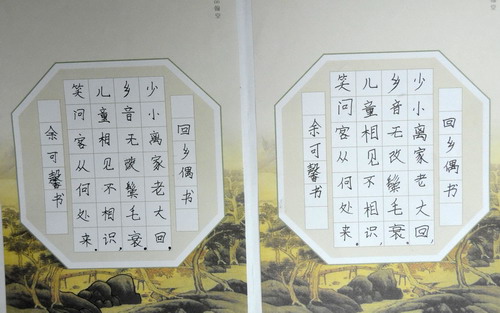 回乡偶书
少小离家老大回，
乡音无改鬓毛衰。
儿童相见不相识，
笑问客从何处来。
余可馨书
回乡偶书
少小离家老大回，
乡音无改鬓毛衰。
儿童相见不相识，
笑问客从何处来。
余可馨书